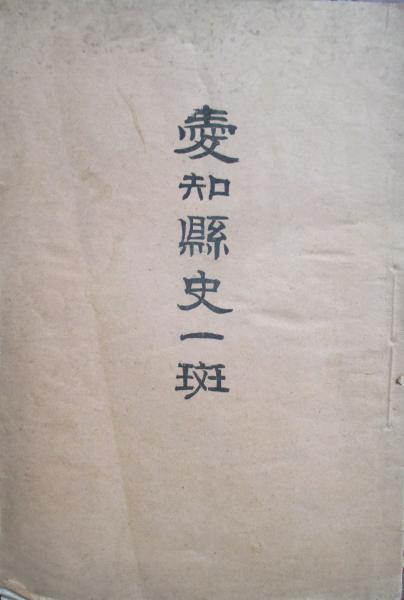 愛知縣史一斑